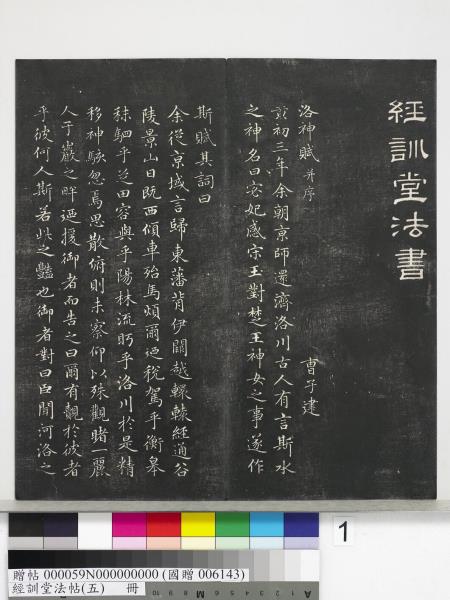 經訓堂法書
洛神賦 并序 曹子建
黃初三年余朝京師還濟洛川古人有言斯水
之神名曰宓妃感宋玉對楚王神女之事遂作
斯賦其詞曰
余從京域言歸東藩背伊闕越轘轅經通谷
陵景山日既西傾車殆馬煩爾迺稅駕乎蘅皋
秣駟乎芝田容與乎陽林流眄乎洛川於是精
移神駭忽焉思散俯則未察仰以殊觀睹一麗
人于巖之畔迺援御者而告之曰爾有覿於彼者
乎彼何人斯若此之豔也御者對曰臣聞河洛之
1
贈帖 000059N000000000 (國贈 006143)
經訓堂法帖(五) 冊